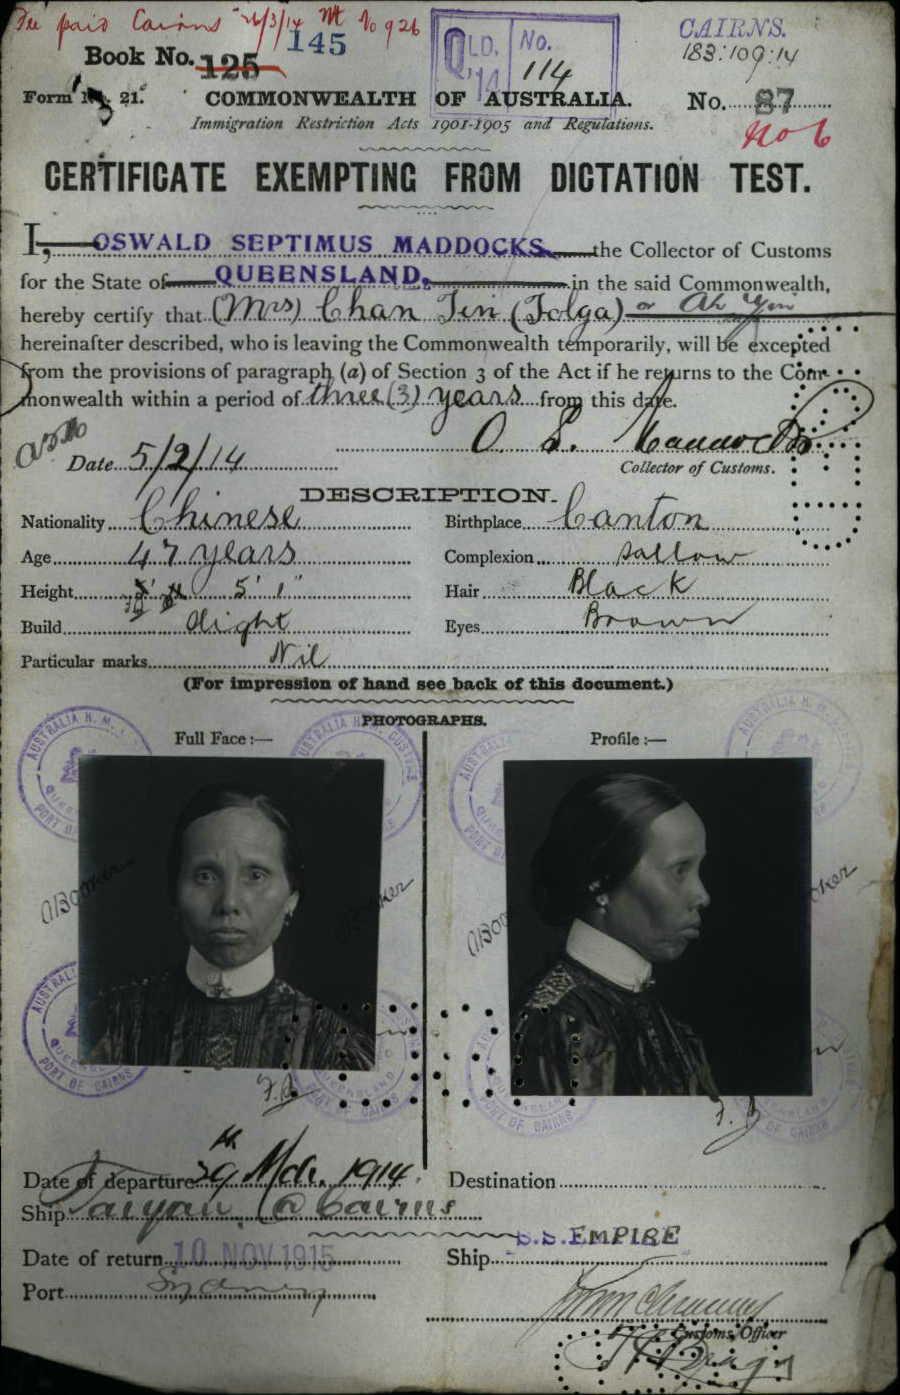 Fee paid Cairns 26/3/14 No 926
145
Book No. 125
QLD. '14 No. 114
CAIRNS.
183:109:14
Form No. 21.
COMMONWEALTH OF AUSTRALIA.
No. 87
No 6
Immigration Restriction Acts 1901-1905 and Regulations.
CERTIFICATE EXEMPTING FROM DICTATION TEST.
I, OSWALD SEPTIMUS MADDOCKS, the Collector of Customs
for the State of QUEENSLAND, in the said Commonwealth,
hereby certify that (Mrs) Chan Tin (Tolga) or Ah Yin
hereinafter described, who is leaving the Commonwealth temporarily, will be excepted
from the provisions of paragraph (a) of Section 3 of the Act if he returns to the Com-
monwealth within a period of three (3) years from this date.
O. S. Maddocks
Date 5/2/14
Collector of Customs.
DESCRIPTION.
Nationality Chinese
Birthplace Canton
Age 47 years
Complexion Sallow
Height 5' 1"
Hair Black
Build Slight
Eyes Brown
Particular marks Nil
(For impression of hand see back of this document.)
PHOTOGRAPHS.
Full Face :—
Profile :—
AUSTRALIA H. M. CUSTOMS
QUEENSLAND
PORT OF CAIRNS
F.B
F.B
Date of departure 29th Mch. 1914.
Destination
Ship Taiyuan @ Cairns
Date of return 10 NOV 1915
Ship S.S. EMPIRE
Port Sydney
Customs Officer